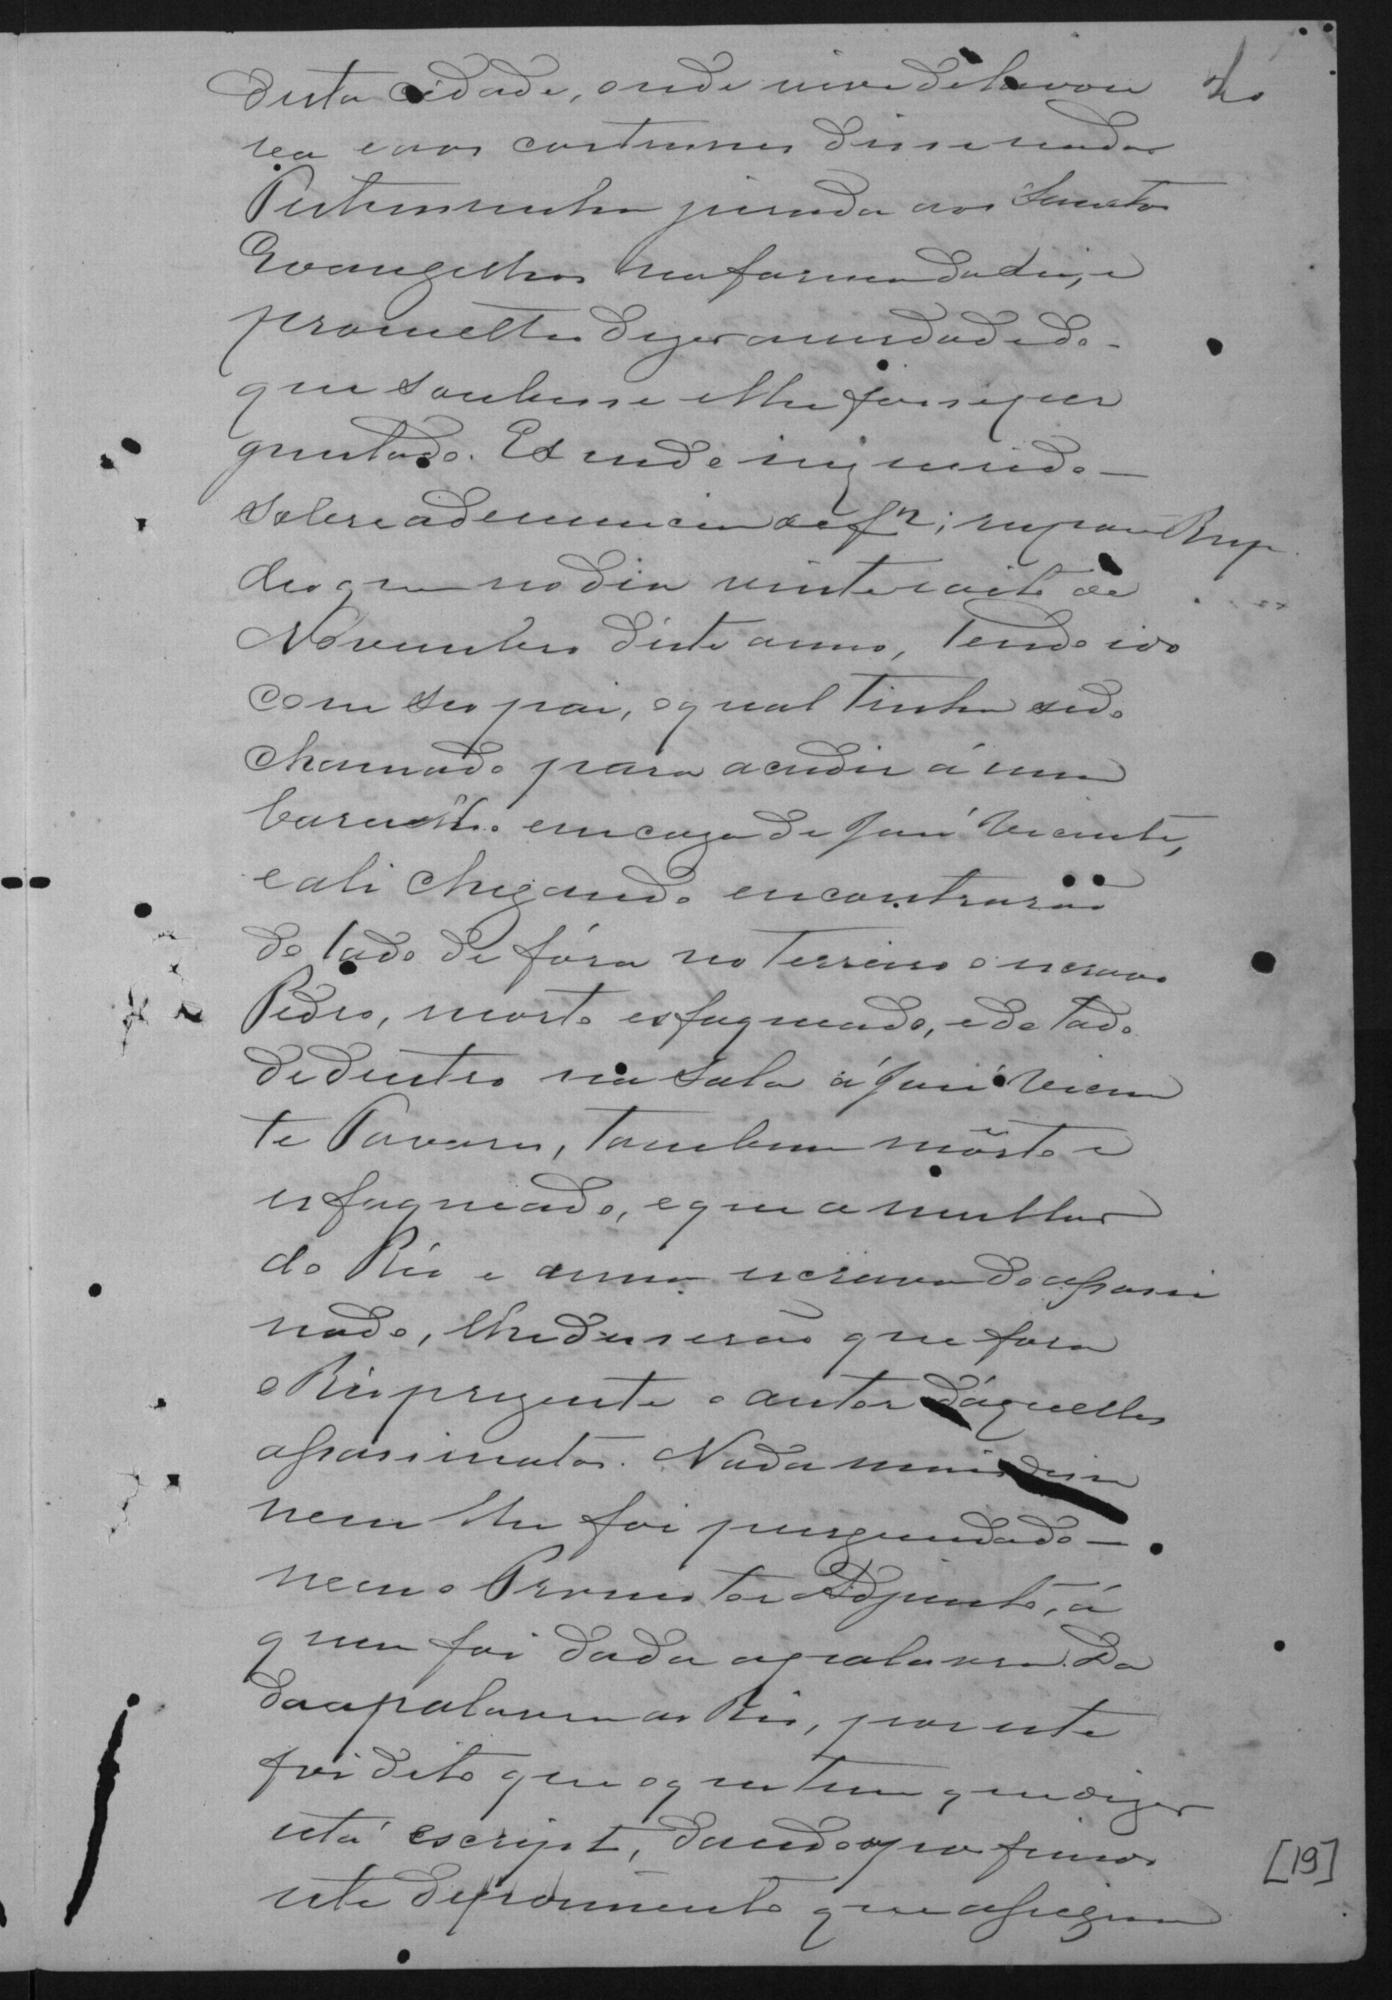 desta cidade, onde vive de lavou
ra e aos costumes disse nada
Testemunha jurada aos Santos
Evangelhos na forma da Lei, e
prometteo dizer a verdade do
que soubesse e lhe fosse per
guntado. E sendo inquirido
sobre a denuncia de f 2; respon Resp
deo que no dia vinte e oito de
Novembro deste anno, tendo ido
com seo pai, o qual tinha sido
chamado para acudir á um
barulho em caza de José Vicente,
e ali chegando encontrarão
do lado de fóra no terreiro o escravo
Pedro, morto esfaqueado, e do lado
de dentro na sala á José Vicen
te Tavares, tambem morto e
esfaqueado, e que a mulher
do Réo e uma escrava do assassi
nado, lhe disserão que fora
o Réo prezente o autor d'aquelles
assassinatos. Nada mais disse
nem lhe foi perguntado
nem o Promotor Adjunto, á
quem foi dada a palavra. Da
da a palavra ao Réo, por este
foi dito que o que tem que dizer
está escripto, dando-se por findo
este depoimento que assigna
[19]